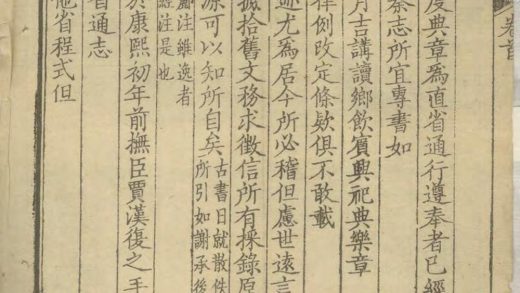 卷首
度典章為直省通行遵奉者已經
秦志所宜專書如
月吉講讀鄉飲賓興祀典樂章
律例改定條欵俱不敢載
迹尤為居今所必稽但慮世遠言
摭拾舊文務求徵信所有採錄原
源可以知所自矣古書日就散佚
所引如謝承後
注雖逸者
注是也
於康熙初年前撫臣賈漢復之手
省通志
他省程式但